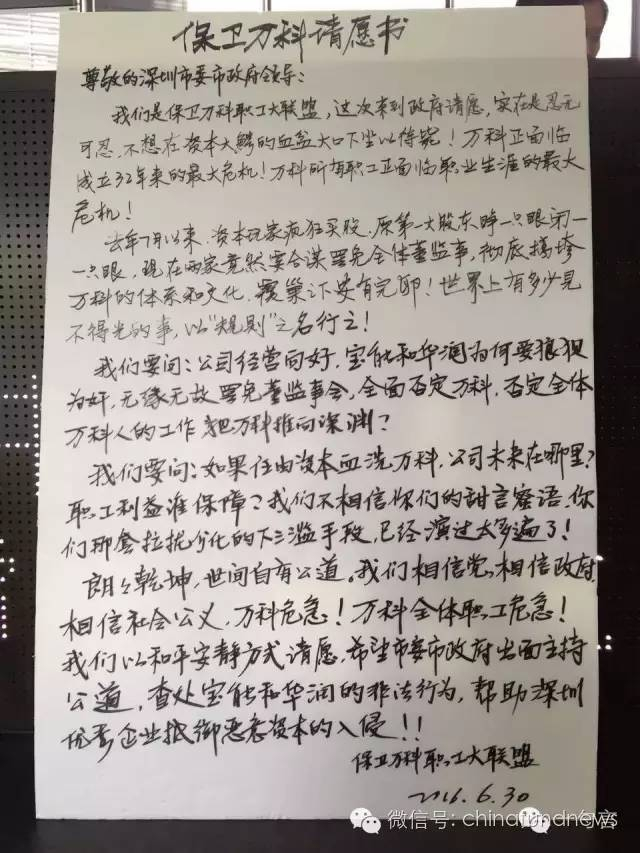 保卫万科请愿书
尊敬的深圳市委市政府领导：
我们是保卫万科职工大联盟，这次来到政府请愿，实在是忍无
可忍，不想在资本大鳄的血盆大口下坐以待毙！万科正面临
成立32年来的最大危机！万科所有职工正面临职业生涯的最大
危机！
去年7月以来，资本玩家疯狂买股，原第一大股东睁一只眼闭一
一只眼，现在两家竟然要合谋罢免全体董监事，彻底搞垮
万科的体系和文化，覆巢之下安有完卵！世界上有多少见
不得光的事，以“规则”之名行之！
我们要问：公司经营向好，宝能和华润为何要狼狈
为奸，无缘无故罢免董监事会，全面否定万科，否定全体
万科人的工作，把万科推向深渊？
我们要问：如果任由资本血洗万科，公司未来在哪里？
职工利益谁保障？我们不相信你们的甜言蜜语，你
们那套拉拢分化的下三滥手段，已经演过太多遍了！
朗朗乾坤，世间自有公道。我们相信党，相信政府，
相信社会公义，万科危急！万科全体职工危急！
我们以和平安静方式请愿，希望市委市政府出面主持
公道，查处宝能和华润的非法行为，帮助深圳
优秀企业抵御恶意资本的入侵！！
保卫万科职工大联盟
2016.6.30
微信号: chinafundnews